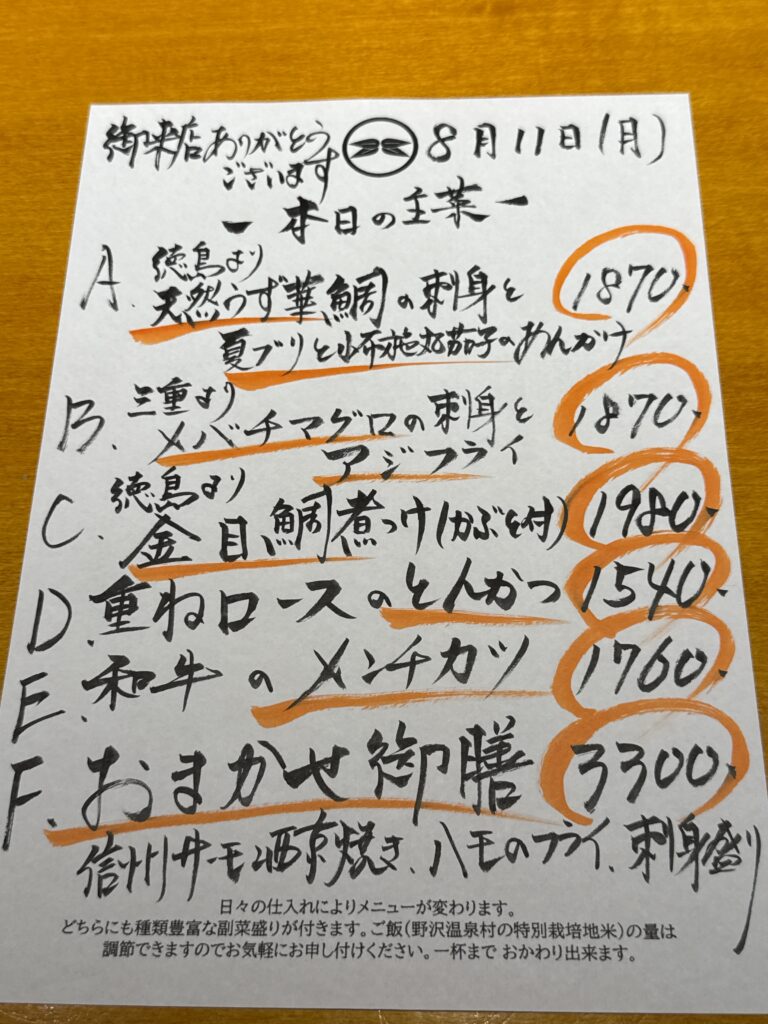 御来店ありがとう
ございます
8月11日(月)
ー本日の主菜ー
A. 徳島より
天然うず華鯛の刺身と 1870.
夏ブリと小布施丸茄子のあんかけ
B. 三重より
メバチマグロの刺身と 1870.
アジフライ
C. 徳島より
金目鯛煮つけ(かぶと付) 1980.
D. 重ねロースのとんかつ 1540.
E. 和牛のメンチカツ 1760.
F. おまかせ御膳 3300.
信州サーモン西京焼き、ハモのフライ、刺身盛り
日々の仕入れによりメニューが変わります。
どちらにも種類豊富な副菜盛りが付きます。ご飯(野沢温泉村の特別栽培地米)の量は
調節できますのでお気軽にお申し付けください。一杯まで おかわり出来ます。